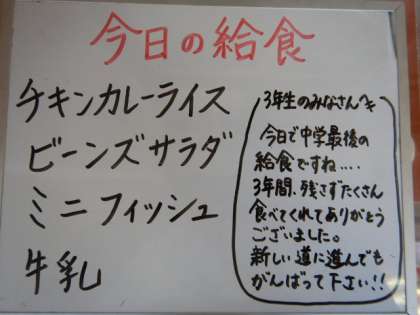 今日の給食
チキンカレーライス
ビーンズサラダ
ミニフィッシュ
牛乳
3年生のみなさんへ
今日で中学最後の
給食ですね....
3年間、残さずたくさん
食べてくれてありがとう
ございました。
新しい道に進んでも
がんばって下さい!!